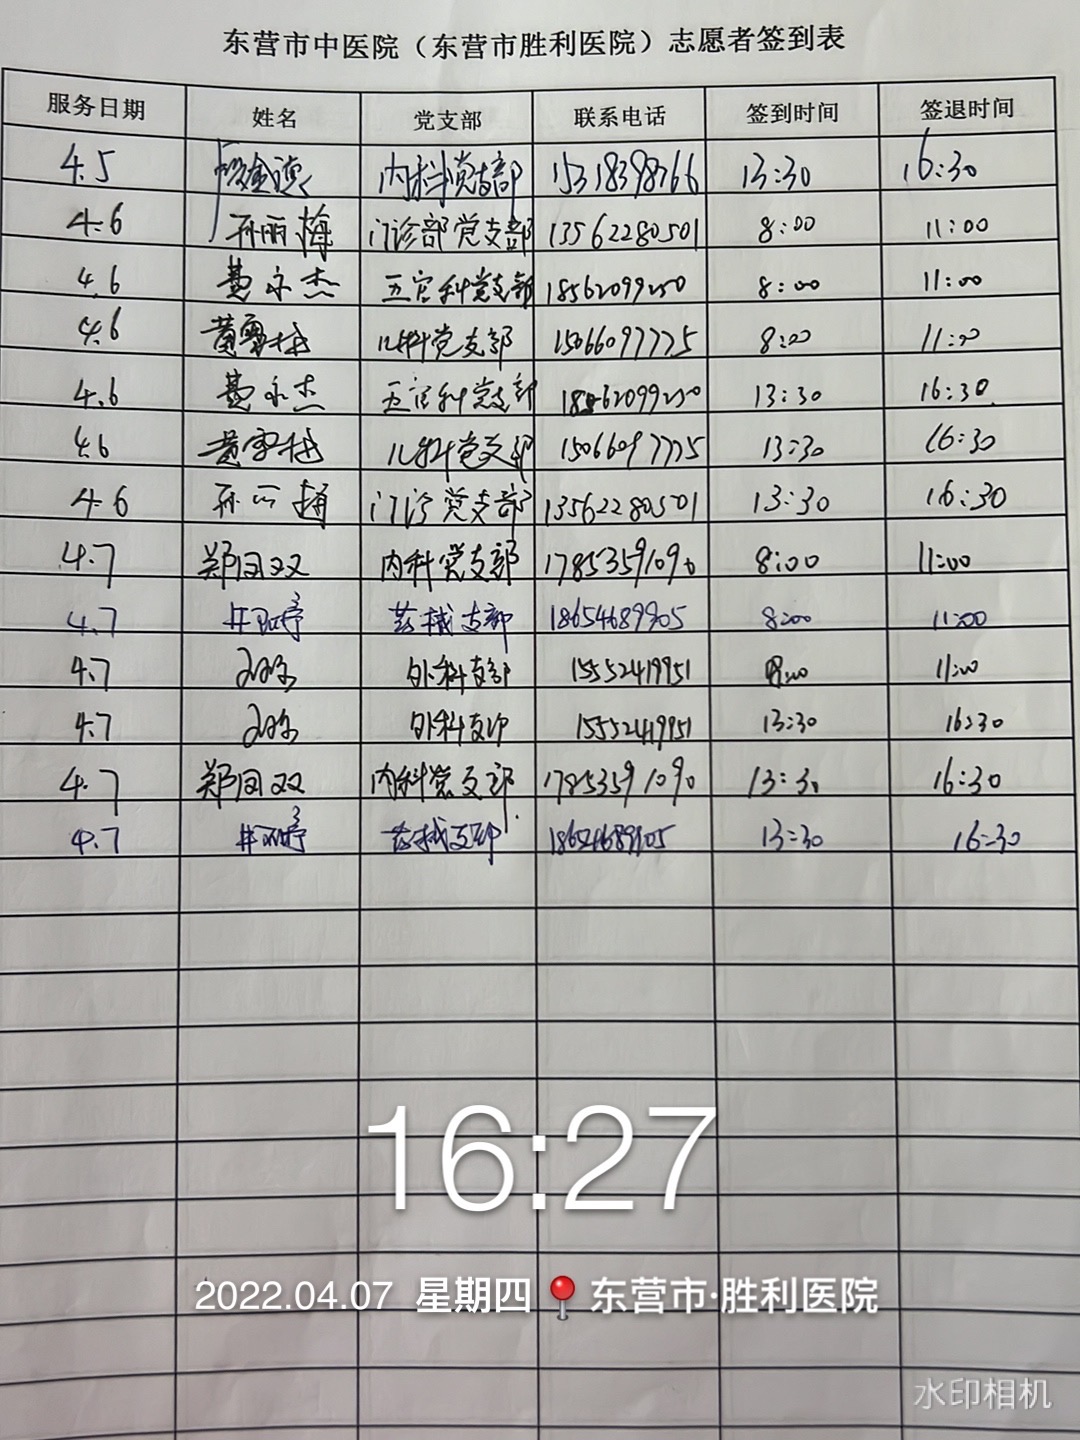 东营市中医院（东营市胜利医院）志愿者签到表
服务日期 姓名 党支部 联系电话 签到时间 签退时间
4.5 内科党支部 15318398766 13:30 16:30
4.6 孙丽梅 门诊部党支部 13562280501 8:00 11:00
4.6 黄永杰 五官科党支部 18562099250 8:00 11:00
4.6 黄雪梅 儿科党支部 15066097775 8:00 11:00
4.6 黄永杰 五官科党支部 18562099250 13:30 16:30
4.6 黄雪梅 儿科党支部 15066097775 13:30 16:30
4.6 孙丽梅 门诊党支部 13562280501 13:30 16:30
4.7 郑凤双 内科党支部 17853591090 8:00 11:00
4.7 药械支部 18654689905 8:00 11:00
4.7 外科支部 15552419951 8:00 11:00
4.7 外科支部 15552419951 13:30 16:30
4.7 郑凤双 内科党支部 17853591090 13:30 16:30
4.7 药械支部 18654689905 13:30 16:30
16:27
2022.04.07 星期四 东营市·胜利医院
水印相机